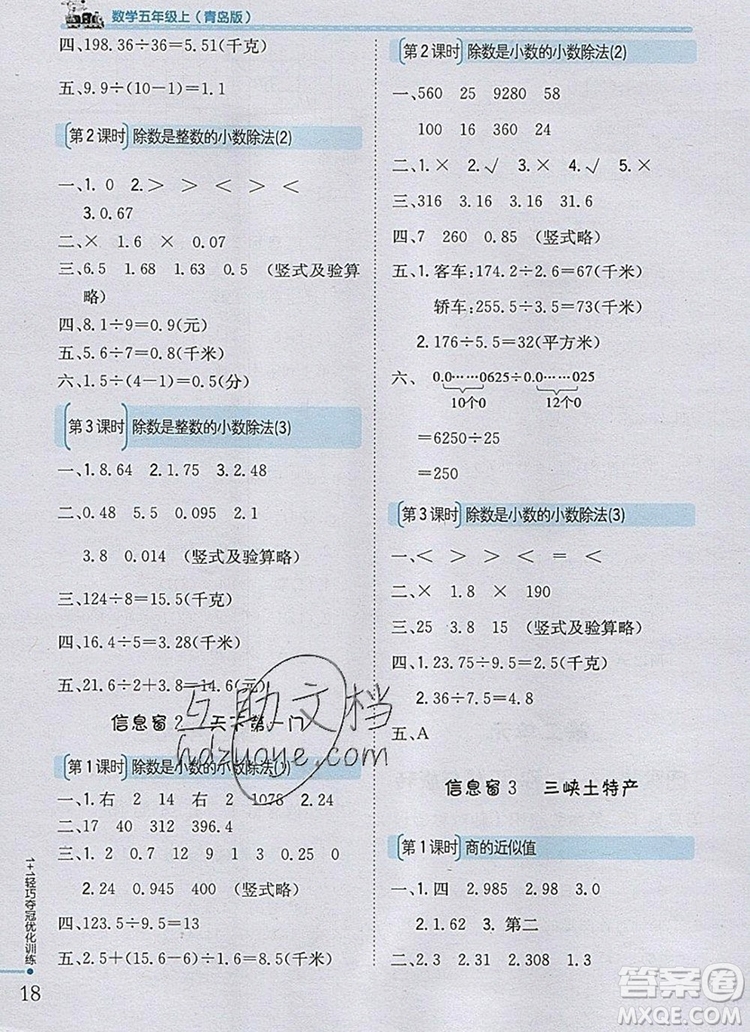 数学五年级上（青岛版）
四、198.36÷36=5.51(千克)
五、9.9÷(10−1)=1.1
第2课时 除数是整数的小数除法(2)
一、1. 0 2. > > > < <
3. 0.67
二、× 1.6 × 0.07
三、6.5 1.68 1.63 0.5 (竖式及验算
略)
四、8.1÷9=0.9(元)
五、5.6÷7=0.8(千米)
六、1.5÷(4−1)=0.5(分)
第3课时 除数是整数的小数除法(3)
一、1. 8.64 2. 1.75 3. 2.48
二、0.48 5.5 0.095 2.1
3.8 0.014 (竖式及验算略)
三、124÷8=15.5(千克)
四、16.4÷5=3.28(千米)
五、21.6÷2+3.8=14.6(元)
信息窗2
第1课时 除数是小数的小数除法(1)
一、1. 右 2 右 2 1078 2. 24
二、17 40 312 396.4
三、1. 2 0.7 12 9 1 3 0.21
2. 0.24 45 940 (竖式略)
四、123.5÷9.5=13
五、2.5+(15.6−6)÷6=4.1(元)
1+1轻巧夺冠优化训练
18
第2课时 除数是小数的小数除法(2)
一、560 25 9280 58
100 16 360 24
二、1. × 2. × 3. √ 4. √
三、316 3.16 3.16 0.316
四、7 260 0.85 (竖式略)
五、1. 客车：174.2÷2.6=67(千米)
轿车：255.5÷3.5=73(千米)
2. 176÷5.5=32(平方米)
六、0.0……0625÷0.0……025
10个0 12个0
=6250÷25
=250
第3课时 除数是小数的小数除法(3)
一、< > > < = <
二、× 1.8 × 190
三、25 3.8 15 (竖式及验算略)
四、1. 23.75÷9.5=2.5(千克)
2. 36÷7.5=4.8
五、A
信息窗3 三峡土特产
第1课时 商的近似值
一、1. 四 2. 2.985 2.98 3
2. 1.62 3. 第二
二、2.3 2.29 2.291 0.4 0.40
互助文档
hdzuoye.com
答案圈
MXQE.COM